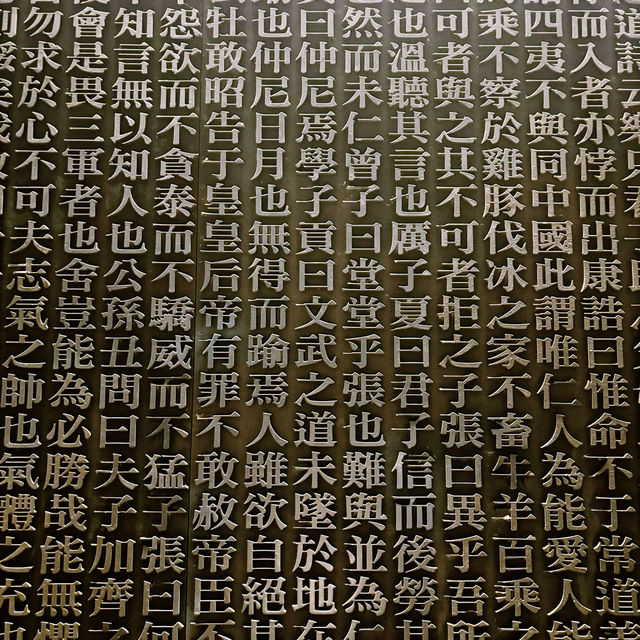 而入者亦悖而出康誥曰惟命不于常道善
四夷不與同中國此謂唯仁人為能愛人能
乘不察於雞豚伐冰之家不畜牛羊百乘之
可者與之其不可者拒之子張曰異乎吾所
也溫聽其言也厲子夏曰君子信而後勞其
然而未仁曾子曰堂堂乎張也難與並為仁
曰仲尼焉學子貢曰文武之道未墜於地在
也仲尼日月也無得而踰焉人雖欲自絕其
牡敢昭告于皇皇后帝有罪不敢赦帝臣不
怨欲而不貪泰而不驕威而不猛子張曰何
知言無以知人也公孫丑問曰夫子加齊之
會是畏三軍者也舍豈能為必勝哉能無懼
勿求於心不可夫志氣之帥也氣體之充也